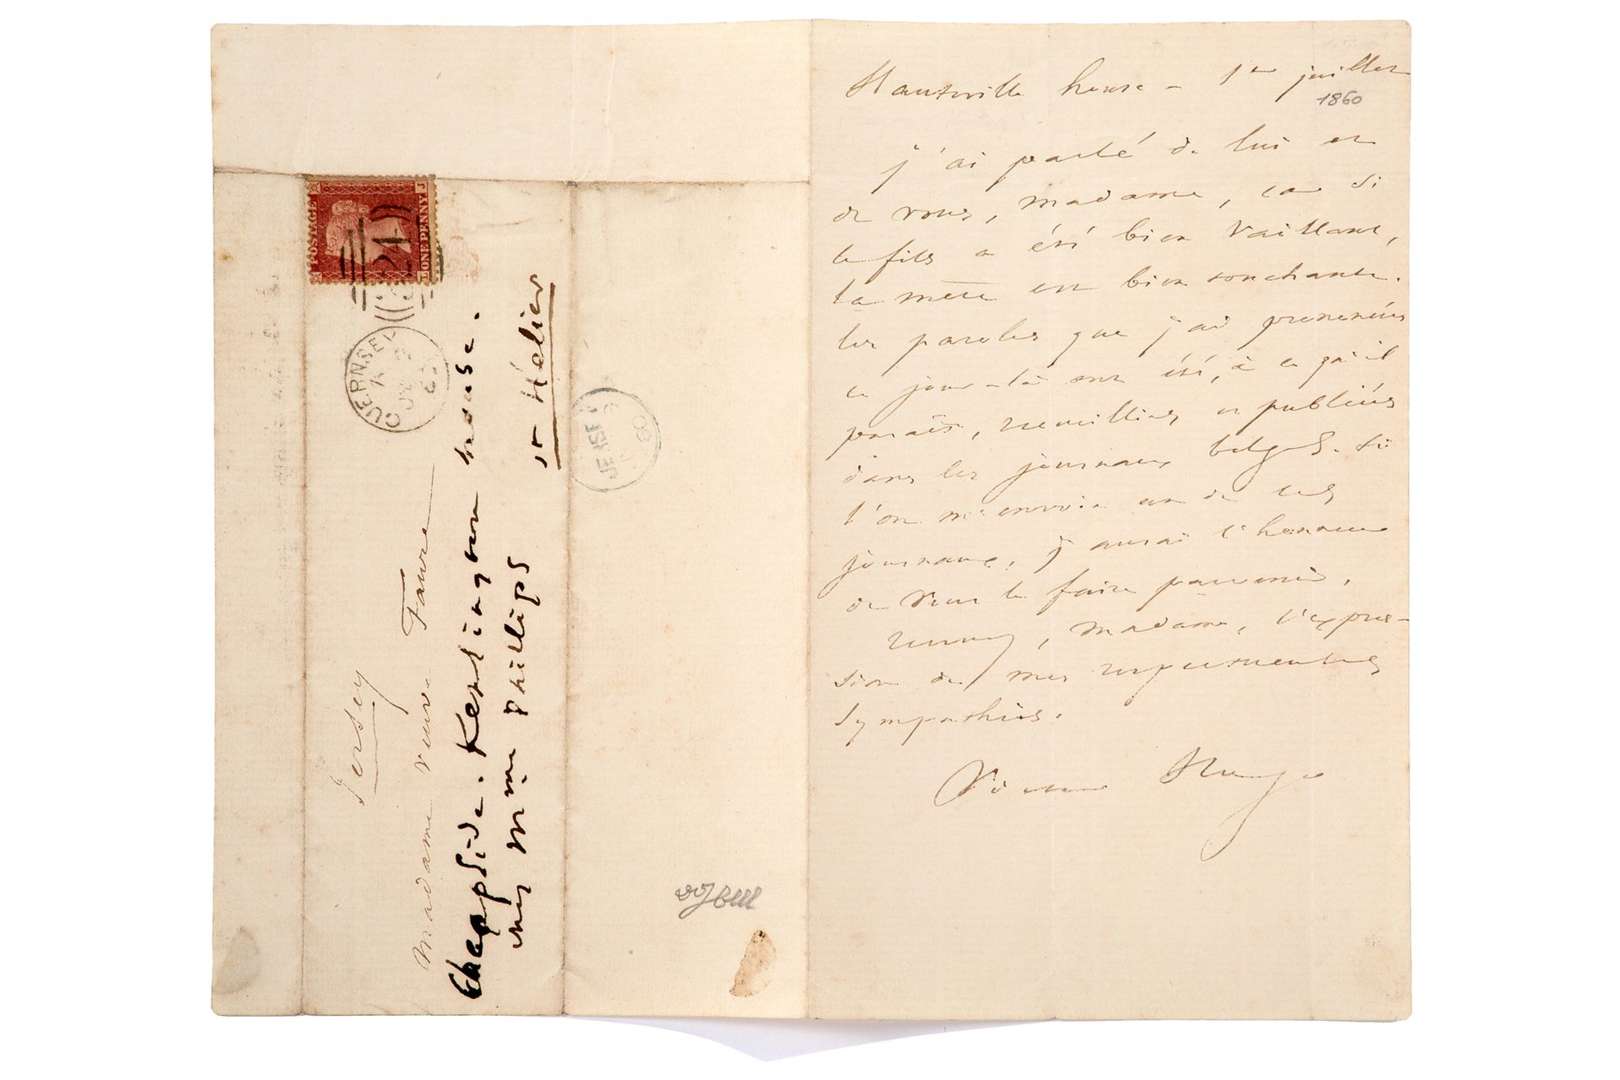 POSTAGE
ONE PENNY
324
GUERNSEY
JY 2
60
JERSEY
60
Jersey
Madame veuve Faure
Cheapside. Kensington house.
chez Mme Phillips
St Hélier
Hauteville house – 1er juillet
1860
j'ai parlé de lui et
de vous, madame, car si
le fils a été bien vaillant,
la mère est bien touchante.
les paroles que j'ai prononcées
ce jour-là ont été, à ce qu'il
paraît, recueillies et publiées
dans les journaux belges. Si
l'on m'envoie un de ces
journaux, j'aurai l'honneur
de vous le faire parvenir.
recevez, madame, l'expres-
sion de mes respectueuses
sympathies.
Victor Hugo